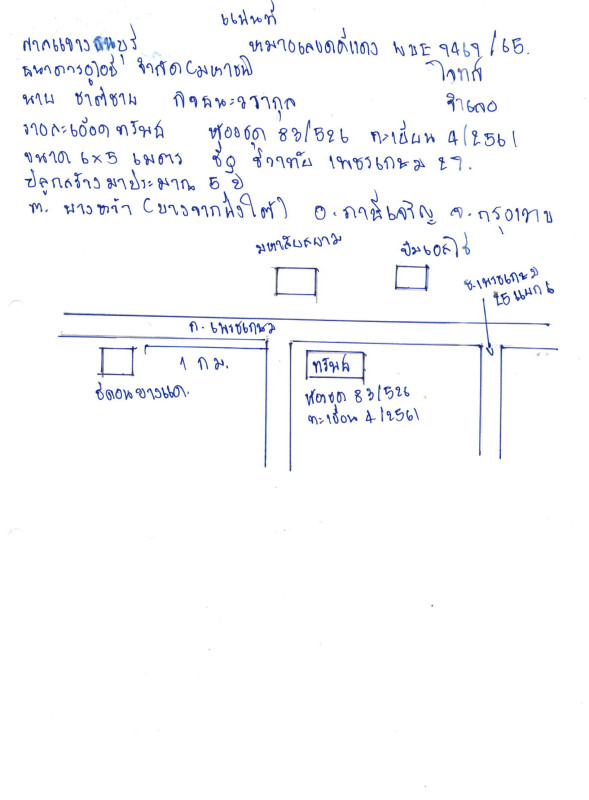 แผนที่
ศาลแขวงธนบุรี หมายเลขคดีแดง ผบE 9469/65.
ธนาคารยูโอบี จำกัด (มหาชน) โจทก์
นาย ชาติชาย กิจธนะวรากุล จำเลย
รายละเอียดทรัพย์ ห้องชุด 83/526 ทะเบียน 4/2561
ขนาด 6x5 เมตร ชื่อ ชีวาทัย เพชรเกษม 27.
ปลูกสร้างมาประมาณ 5 ปี
ต. บางหว้า (บางจากฝั่งใต้) อ. ภาษีเจริญ จ. กรุงเทพ
มหาลัยสยาม ปั๊มเอสโซ่
ซ.เพชรเกษม
25 แยก 6
ถ. เพชรเกษม
1 กม. ทรัพย์
ซีคอนบางแค. ห้องชุด 83/526
ทะเบียน 4/2561